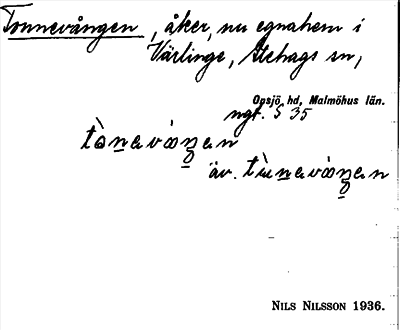 Tonnevången, åker, nu egnahem i
Värlinge, Stehags sn,
Onsjö hd, Malmöhus län.
ngt. S 35
tònavòŋan
äv. tùnavòŋan
NILS NILSSON 1936.